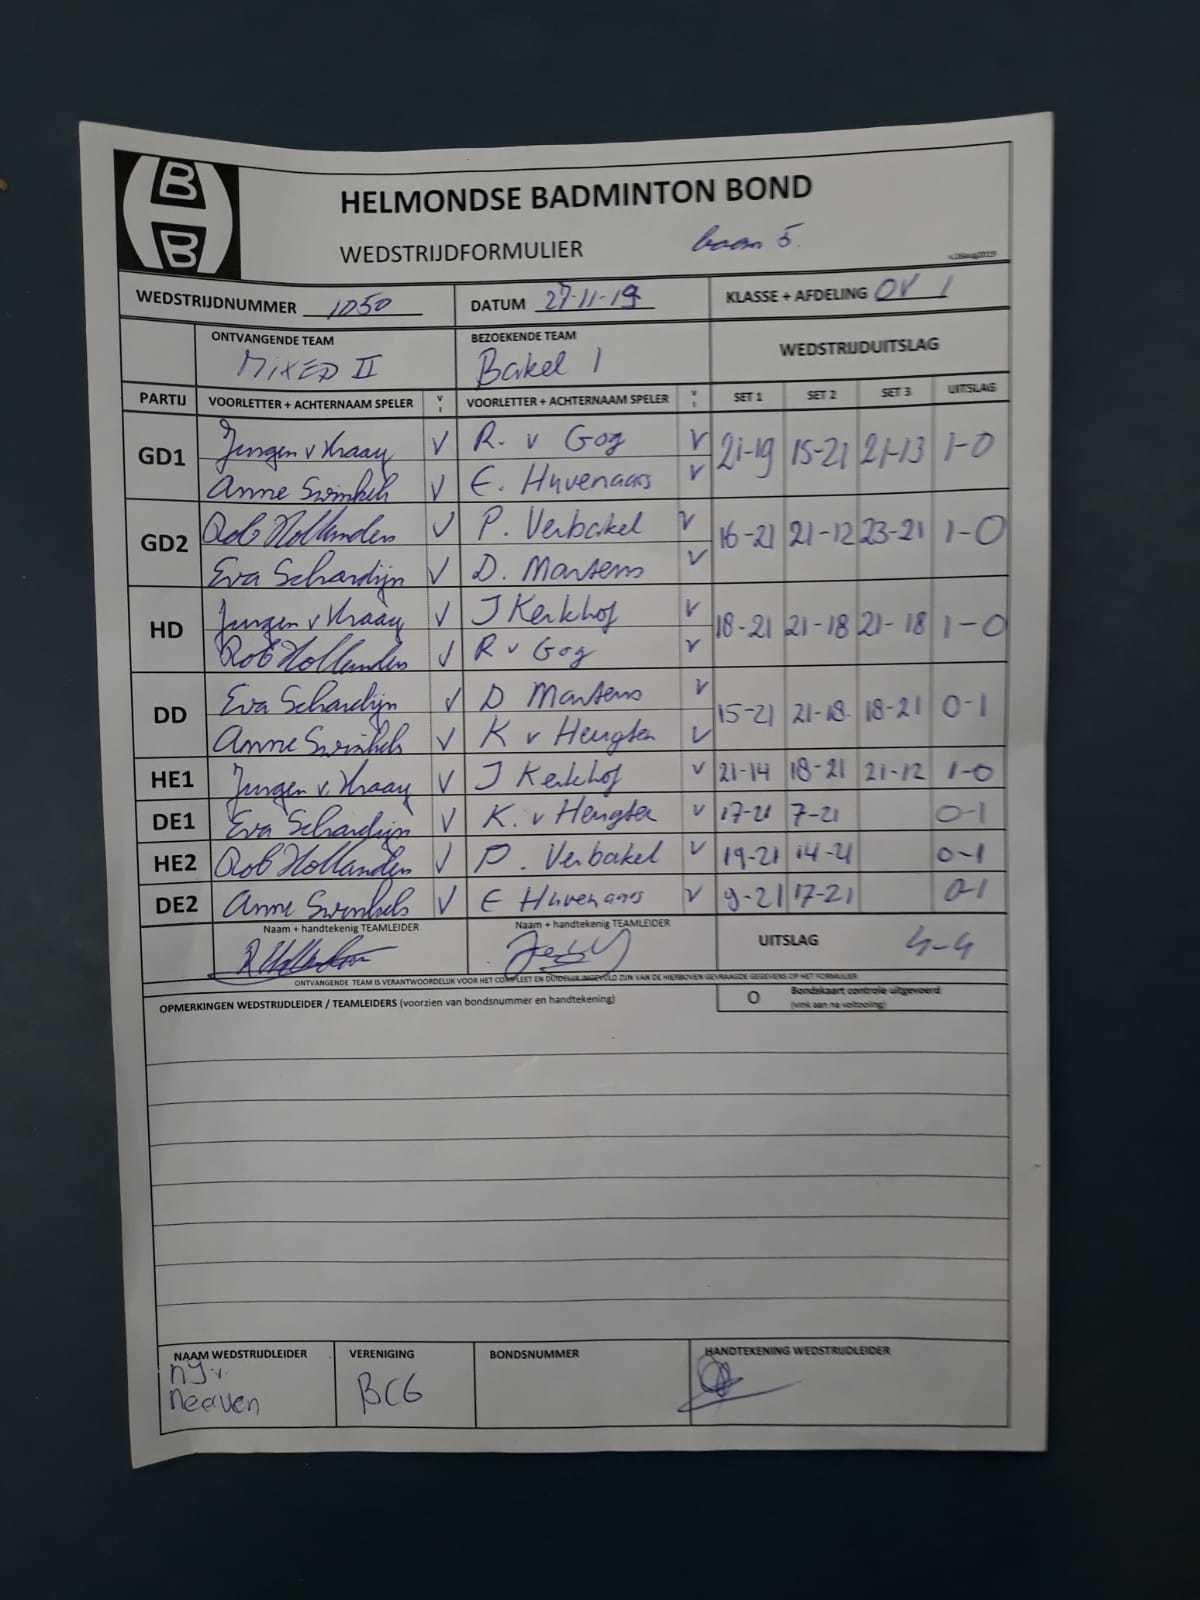 B
B
HELMONDSE BADMINTON BOND
WEDSTRIJDFORMULIER baan 5.
v.28aug2019
WEDSTRIJDNUMMER 1050 DATUM 27-11-19 KLASSE + AFDELING OV 1
ONTVANGENDE TEAM BEZOEKENDE TEAM WEDSTRIJDUITSLAG
MIXED II Bakel 1
PARTIJ VOORLETTER + ACHTERNAAM SPELER V VOORLETTER + ACHTERNAAM SPELER V SET 1 SET 2 SET 3 UITSLAG
GD1 Jurgen v Kraay V R. v Gog V 21-19 15-21 21-13 1-0
Anne Swinkels V E. Huvenaars V
GD2 Rob Hollanders V P. Verbakel V 16-21 21-12 23-21 1-0
Eva Schardijn V D. Martens V
HD Jurgen v Kraay V J Kerkhof V 18-21 21-18 21-18 1-0
Rob Hollanders V R v Gog V
DD Eva Schardijn V D Martens V 15-21 21-18 18-21 0-1
Anne Swinkels V K v Hengten V
HE1 Jurgen v. Kraay V J Kerkhof V 21-14 18-21 21-12 1-0
DE1 Eva Schardijn V K. v Hengten V 17-21 7-21 0-1
HE2 Rob Hollanders V P. Verbakel V 19-21 14-21 0-1
DE2 Anne Swinkels V E Huvenaars V 9-21 17-21 0-1
Naam + handtekenig TEAMLEIDER Naam + handtekenig TEAMLEIDER UITSLAG 4-4
ONTVANGENDE TEAM IS VERANTWOORDELIJK VOOR HET COMPLEET EN DUIDELIJK INGEVULD ZIJN VAN DE HIERBOVEN GEVRAAGDE GEGEVENS OP HET FORMULIER
OPMERKINGEN WEDSTRIJDLEIDER / TEAMLEIDERS (voorzien van bondsnummer en handtekening) O Bondskaart controle uitgevoerd
(vink aan na voltooiing)
NAAM WEDSTRIJDLEIDER VERENIGING BONDSNUMMER HANDTEKENING WEDSTRIJDLEIDER
NJ v.
Neerven BCG